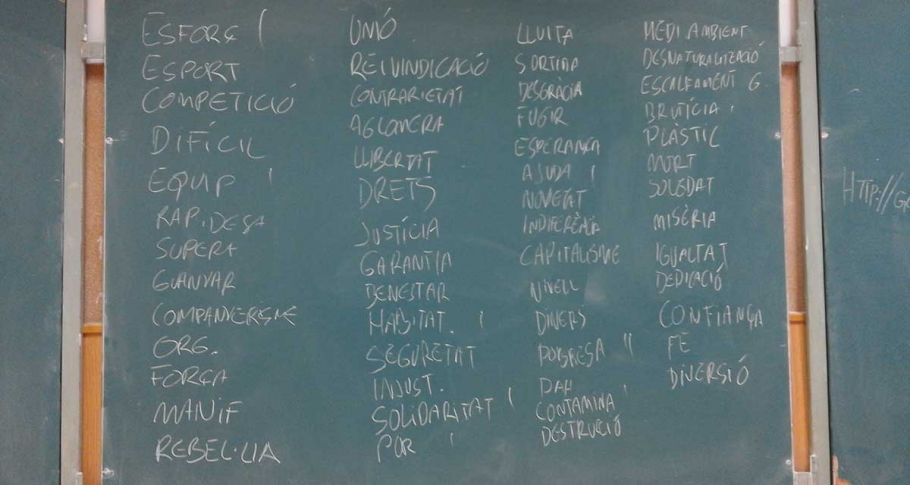 ESFORÇ
ESPORT
COMPETICIÓ
DIFÍCIL
EQUIP
RAPIDESA
SUPERA
GUANYAR
COMPANYERISME
ORG.
FORÇA
MANIF
REBEL·LIA
UNIÓ
REIVINDICACIÓ
CONTRARIETAT
AGLOMERA
LLIBERTAT
DRETS
JUSTÍCIA
GARANTIA
BENESTAR
HABITAT.
SEGURETAT
INJUST.
SOLIDARITAT
POR
LLUITA
SORTIDA
DESGRÀCIA
FUGIR
ESPERANÇA
AJUDA
NOVETAT
INDIFERÈNCIA
CAPITALISME
NIVELL
DINERS
POBRESA
CONTAMINA
DESTRUCCIÓ
MEDI AMBIENT
DESNATURALITZACIÓ
ESCALFAMENT G.
BRUTÍCIA
PLÀSTIC
MORT
SOLEDAT
MISÈRIA
IGUALTAT
DEDICACIÓ
CONFIANÇA
FE
DIVERSIÓ